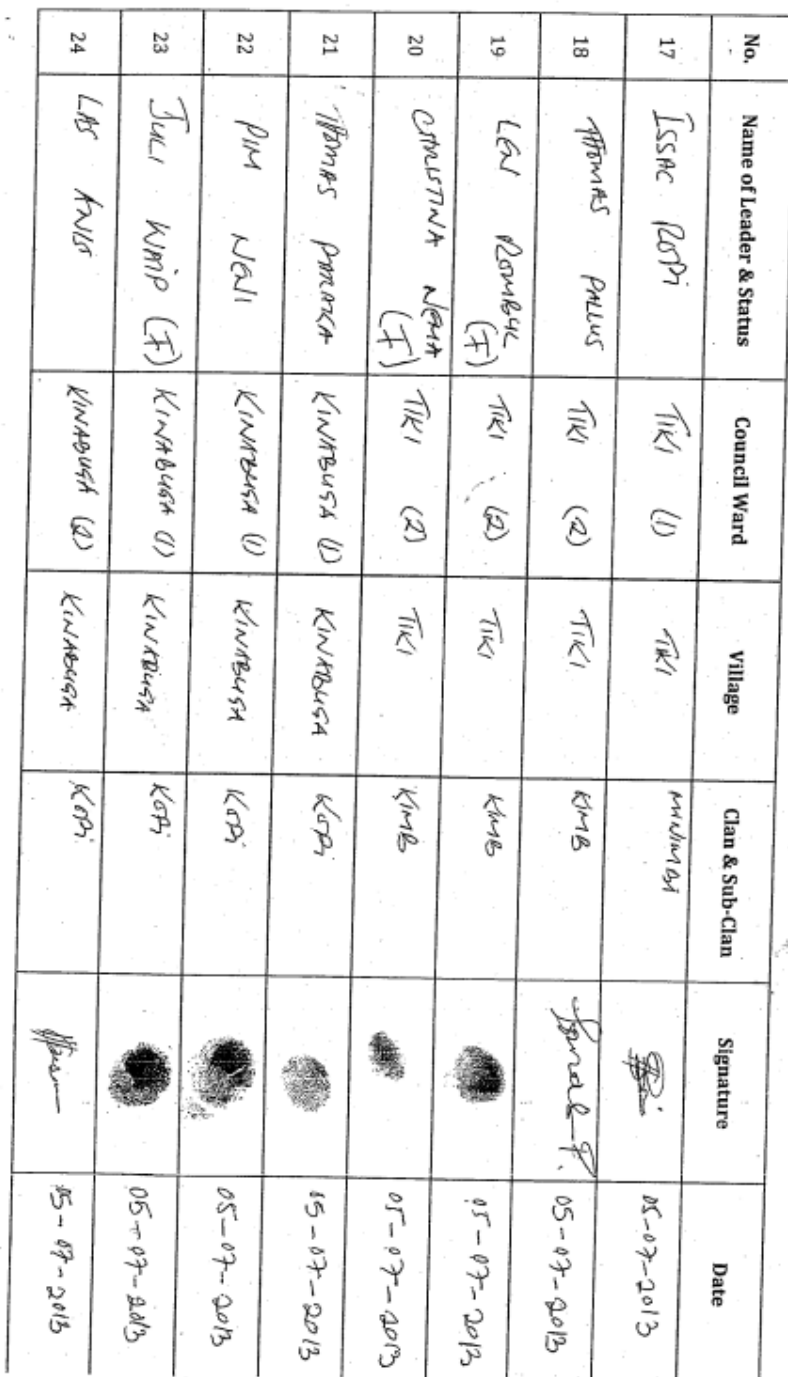 No. Name of Leader & Status Council Ward Village Clan & Sub-Clan Signature Date
17 ISSAC ROPi TIKI (1) TIKI MINIMBI 05-07-2013
18 THOMAS PALLUS TIKI (2) TIKI KIMB 05-07-2013
19 LEN ROMBUK (F) TIKI (2) TIKI KIMB 05-07-2013
20 CHRISTINA NEMA (F) TIKI (2) TIKI KIMB 05-07-2013
21 THOMAS PARAKA KINABUGA (1) KINABUGA KOPi 05-07-2013
22 PIM NENI KINABUGA (1) KINABUGA KOPi 05-07-2013
23 JULI WAIP (F) KINABUGA (1) KINABUGA KOPi 05-07-2013
24 LAS KINABUGA (2) KINABUGA KOPi 05-07-2013